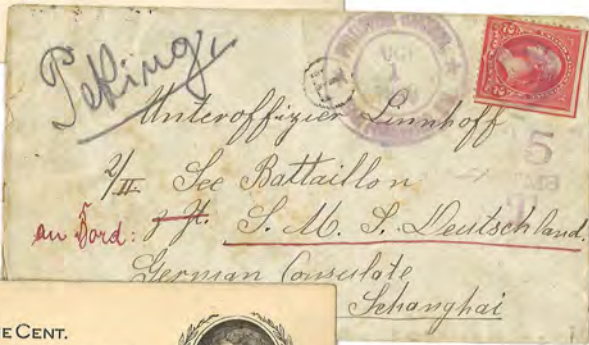 Peking,
AUG
1
T
5
Unteroffizier Linnhoff
2/II. See Battaillon
an Bord: z. Zt. S. M. S. Deutschland.
German Consulate
Schanghai
E CENT.